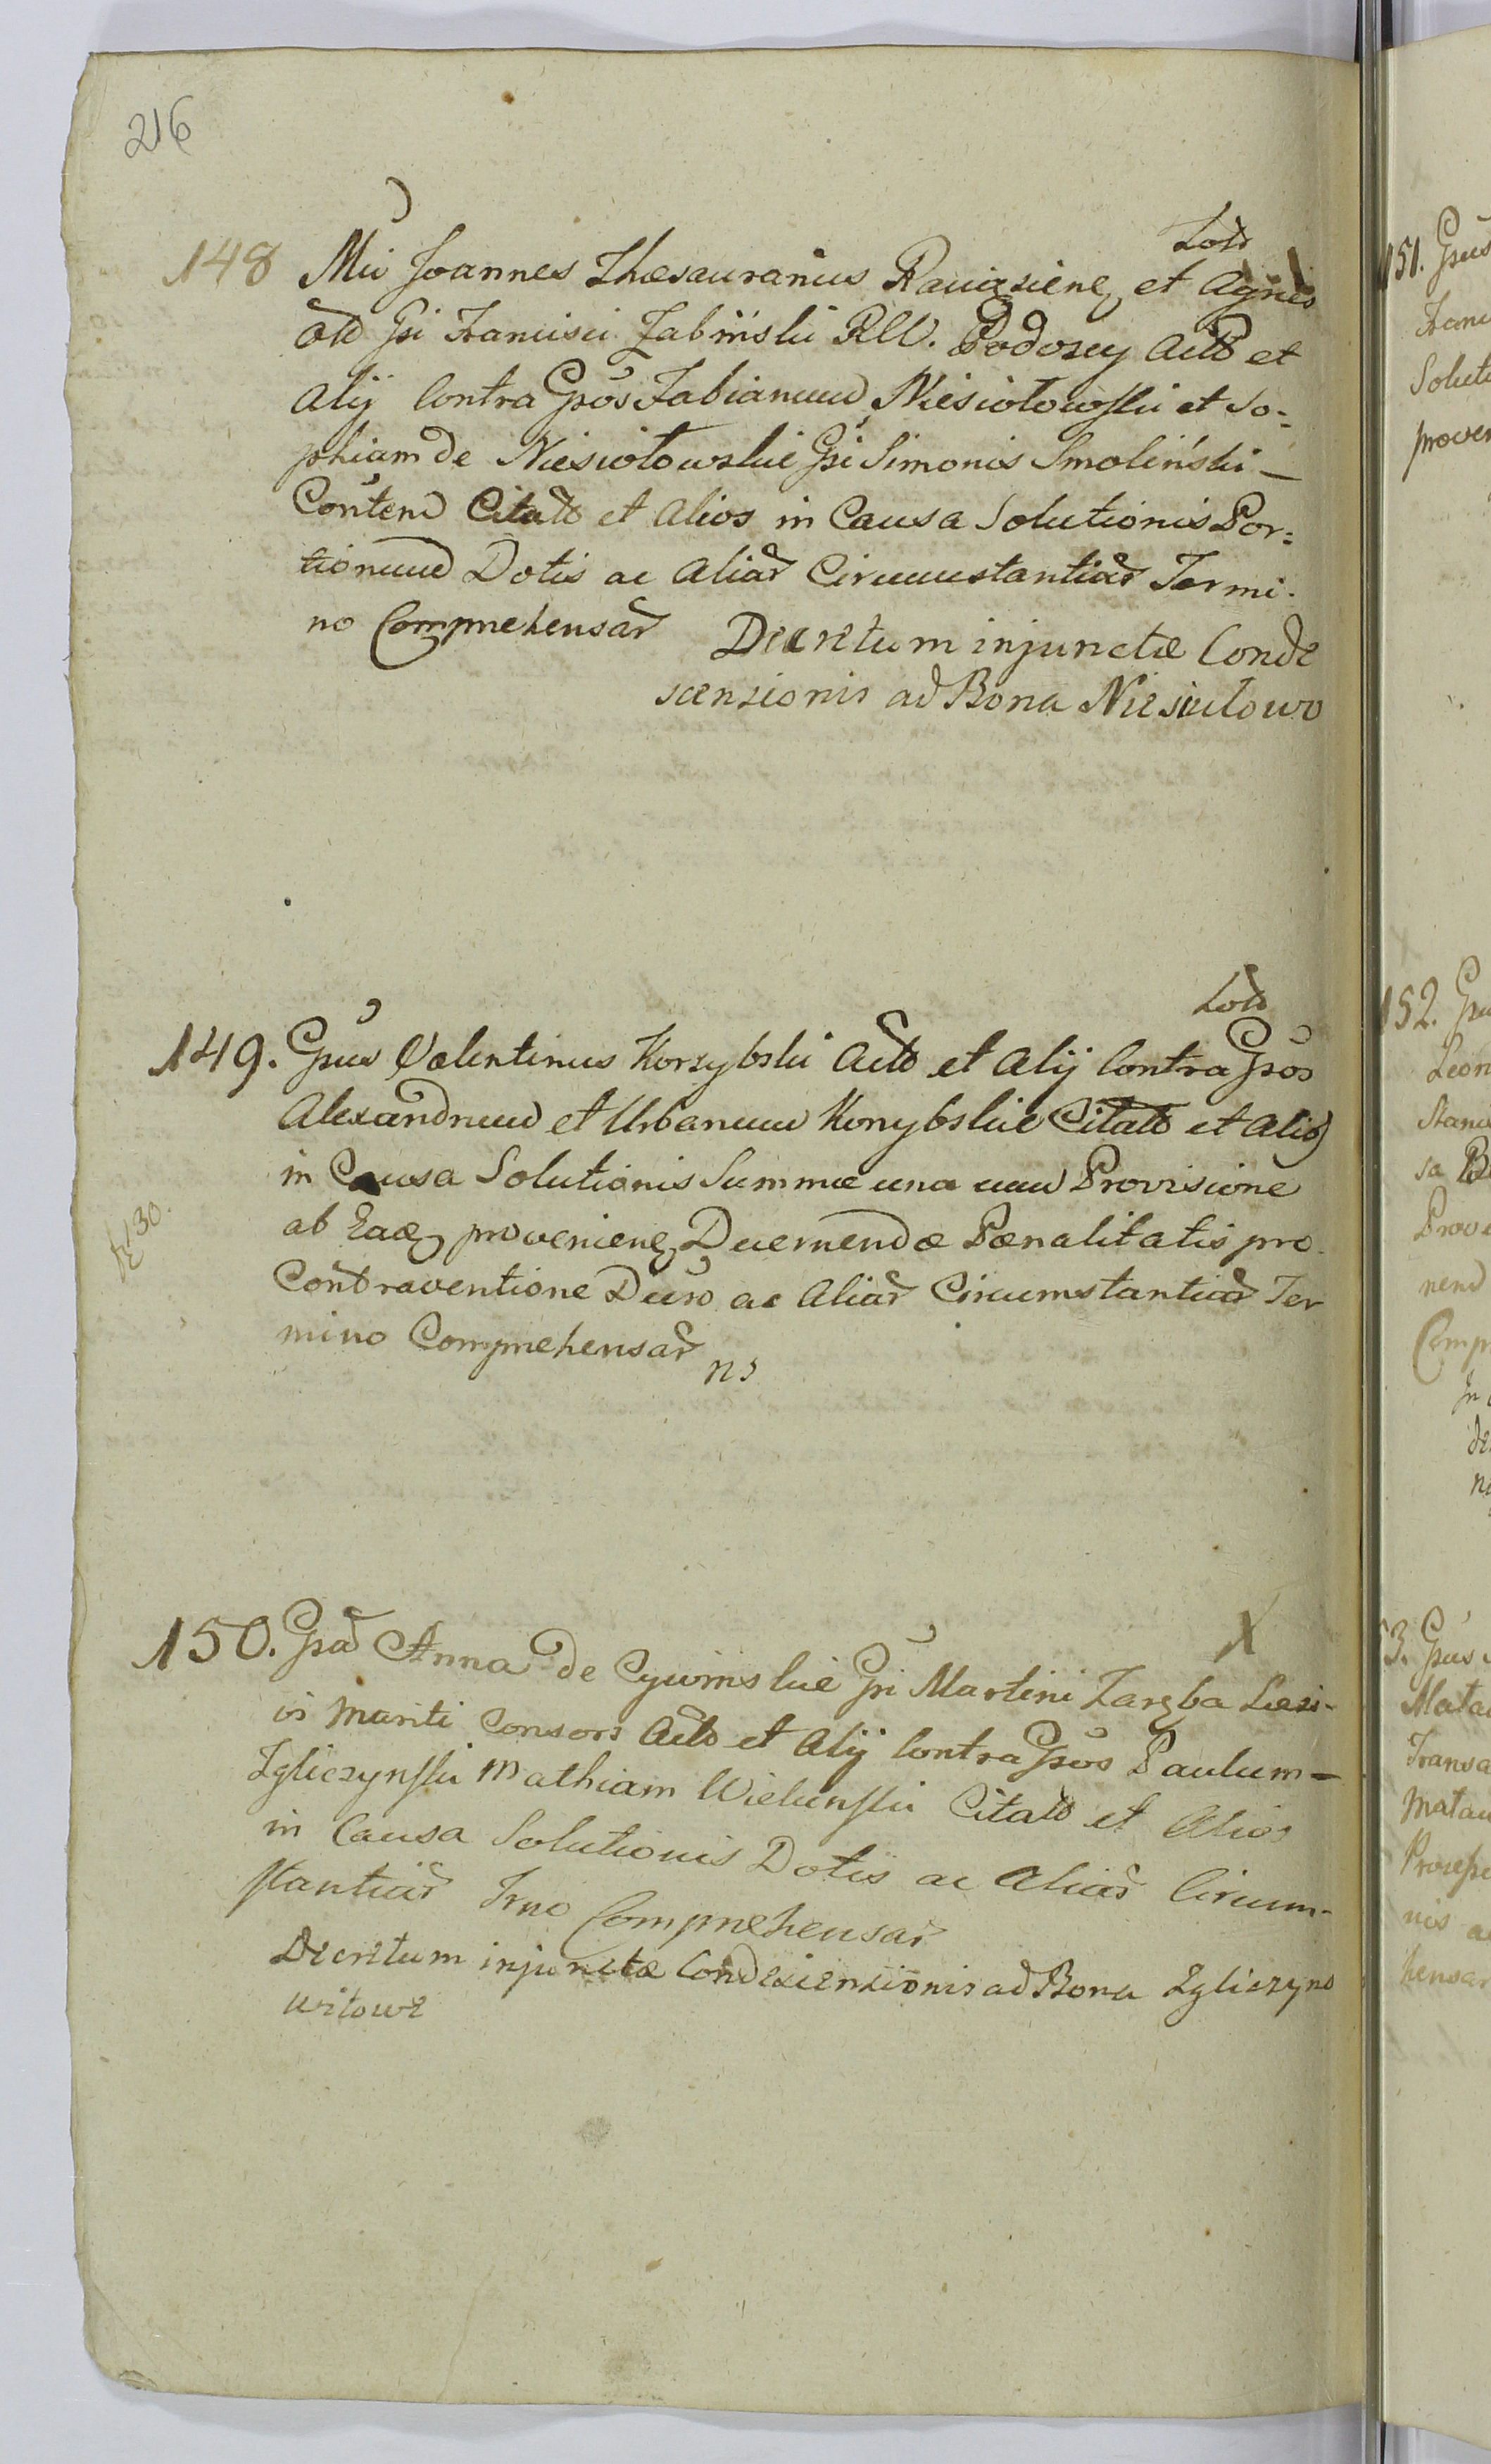 216
Lotr
148 Mii Joannes Thesaurarius et Agnes
Gsi Francisci Żabinski Podosey Acto et
Alij Contra Gsos Fabianum Niesiołowski et So-
phiam de Niesiołowskie Gsi Simonis Smoliński
Citato et Alios in Causa Solutionis Por-
tionum Dotis ac Aliar Circumstantiar Termi-
no Comprehensar Decretum injunctæ Conde
scensionis ad Bona Niesiułowo
149. Gsus Valentinus Korzybski Acto et Alij Contra Gsos
Alexandrum et Urbanum Korzybskie Citato et Alios
in Causa Solutionis Summæ una cum Provisione
ab Eaq provenienq Decernendæ Pœnalitatis pro
Contraventione ac Aliar Circumstantiar Ter
mino Comprehensar
ns
X
150. Gsa Anna de Cywinskie Gsi Martini Zaręba
mariti Consors Acto et Alij Contra Gsos Paulum
Zgliczynski Mathiam Wielunski Citato et Alios
in Causa Solutionis Dotis ac Aliar Circum-
stantiar Trno Comprehensar
Decretum injunctæ Condescensionis ad Bona Zgliczyno
witowe